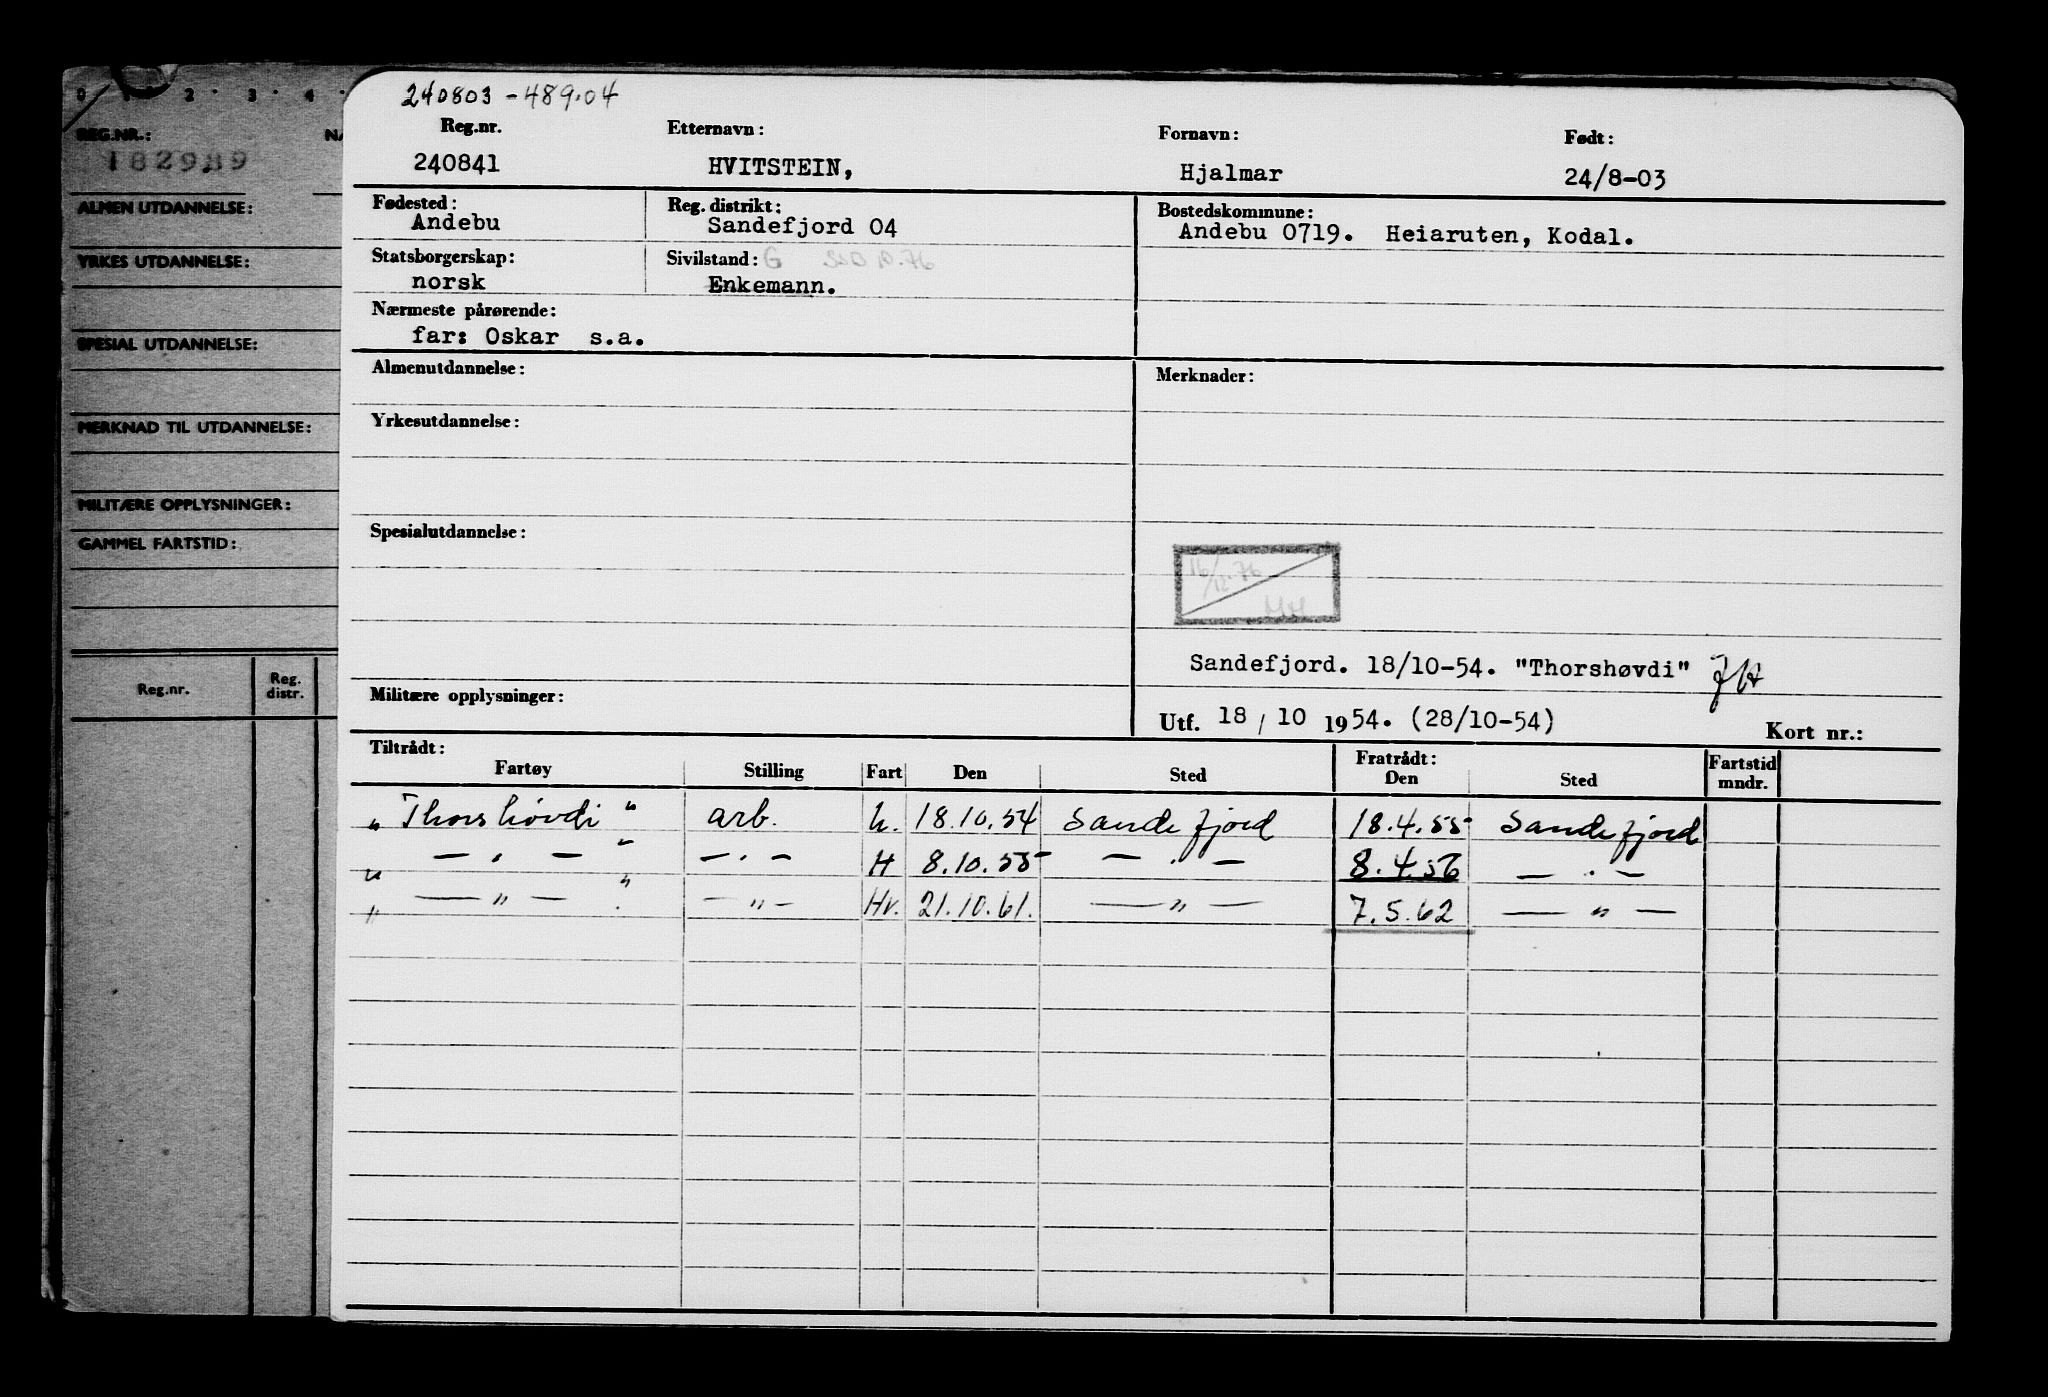 0 1 · 2 · 3 · 4 ·
REG.NR.:
182989
ALMEN UTDANNELSE:
YRKES UTDANNELSE:
SPESIAL UTDANNELSE:
MERKNAD TIL UTDANNELSE:
MILITÆRE OPPLYSNINGER:
GAMMEL FARTSTID:
Reg.nr. Reg. distr.
240803 - 489.04
Reg.nr. Etternavn: Fornavn: Født:
240841 HVITSTEIN, Hjalmar 24/8-03
Fødested: Reg. distrikt: Bostedskommune:
Andebu Sandefjord 04 Andebu 0719. Heiaruten, Kodal.
Statsborgerskap: Sivilstand: G
norsk Enkemann.
Nærmeste pårørende:
far: Oskar s.a.
Almenutdannelse: Merknader:
Yrkesutdannelse:
Spesialutdannelse:
16/12-76
Sandefjord. 18/10-54. "Thorshøvdi"
Militære opplysninger:
Utf. 18 / 10 1954. (28/10-54) Kort nr.:
Tiltrådt: Fratrådt: Fartstid
Fartøy Stilling Fart Den Sted Den Sted mndr.
"Thorshøvdi" arb. h. 18.10.54 Sandefjord 18.4.55 Sandefjord
" — " — " — " — H 8.10.55 — " — 8.4.56 — " —
" — " — " — " — Hv. 21.10.61. — " — 7.5.62 — " —